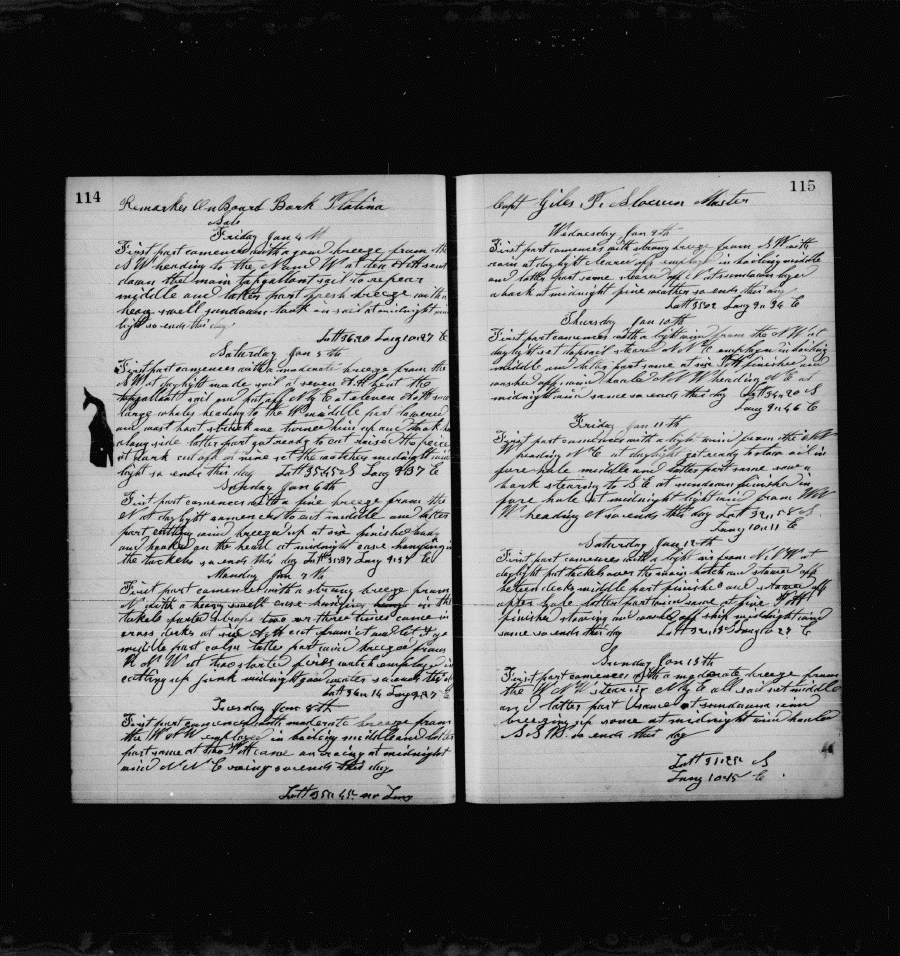 114
Remarkes On Board Bark Platina
Friday Jan 4th
First part comences with a good breeze from the
SW heading to the N and W at ten AM sent
down the main topgallant sail to repear
middle and latter part fresh breeze with a
heavy swell sundown took in sail at midnight
light so ends this day
Latt 36.20 Long 10.27 E
Saturday Jan 5th
First part comences with a moderate breeze from the
SW at daylight made sail at seven AM bent the
topgallant sail and put off N by E at eleven AM saw
large whales heading to the W middle part lowered
and wast boat struck and turned him up and took him
along side latter part got ready to cut raised the peice
at dark cut off at nine set the watches midnight wind
light so ends this day Latt 35.45 S Long 9.37 E
Sunday Jan 6th
First part comences with a fine breeze from the
N at daylight comenced to cut middle and latter
part cutting wind breezed up at six finished body
and hooked on the head at midnight case hanging in
the tackels so ends this day Latt 35.37 Long 9.37 E
Monday Jan 7th
First part comences with a strong breeze from
N with a heavy swell case hanging in the
takels parted straps two or three times came in
cross decks at six AM cut from it and let it go
middle part calm latter part wind breezed from
N W at two started fires watch employed in
cutting up junk midnight good weather so ends this day
Latt 36.14 Long 9.27 E
Tuesday Jan 8th
First part comences with moderate breeze from
the W N W employed in boiling middle and latter
part same at two PM came on racing at midnight
wind N N E so ends this day
Latt 35.45 Long
115
Capt Giles P. Slocum Master
Wednesday Jan 9th
First part comences with strong breeze from S W with
rain at daylight cleared off employed in boiling middle
and latter part same steared off N at sundown
aback at midnight fine weather so ends this day
Latt 35.02 Long 9.34 E
Thursday Jan 10th
First part comences with a light wind from the N W at
daylight set topsail steared N E employed in boiling
middle and latter part same at six PM finished and
washed off wind hauled N N W heading N E at
midnight wind same so ends this day Latt 34.20 S
Long 9.46 E
Friday Jan 11th
First part comences with a light wind from the N
W heading N E at daylight got ready to stow oil in
fore hole middle and latter part same saw a
bark stearing to S E at sundown finished in
fore hole at midnight light wind from W
W heading N so ends this day Latt 32.58 S
Long 10.11 E
Saturday Jan 12th
First part comences with a light air from N N W at
daylight put tackels over the main hatch and stowed off
between decks middle part finished and stowed off
after hole latter part wind same at five PM
finished stowing and washed off ship midnight wind
same so ends this day Latt 32.13 Long 10.27 E
Sunday Jan 13th
First part comences with a moderate breeze from
the W N W stearing N by E all sail set middle
and latter part same at sundown wind
breezing up some at midnight wind hauled
S S W so ends this day
Latt 31.25 S
Long 10.45 E